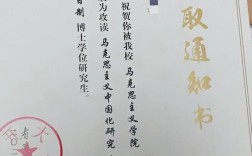 取通知书
祝贺你被我校 马克思主义学院
为攻读 马克思主义中国化研究
日制 博士学位研究生。